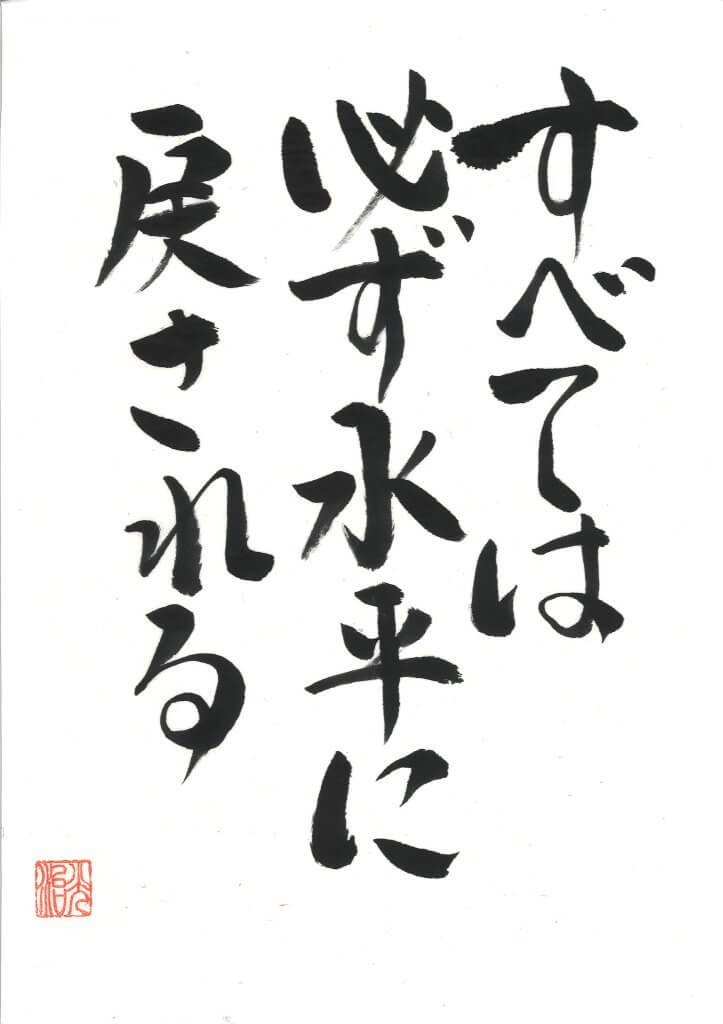 すべては
必ず水平に
戻される